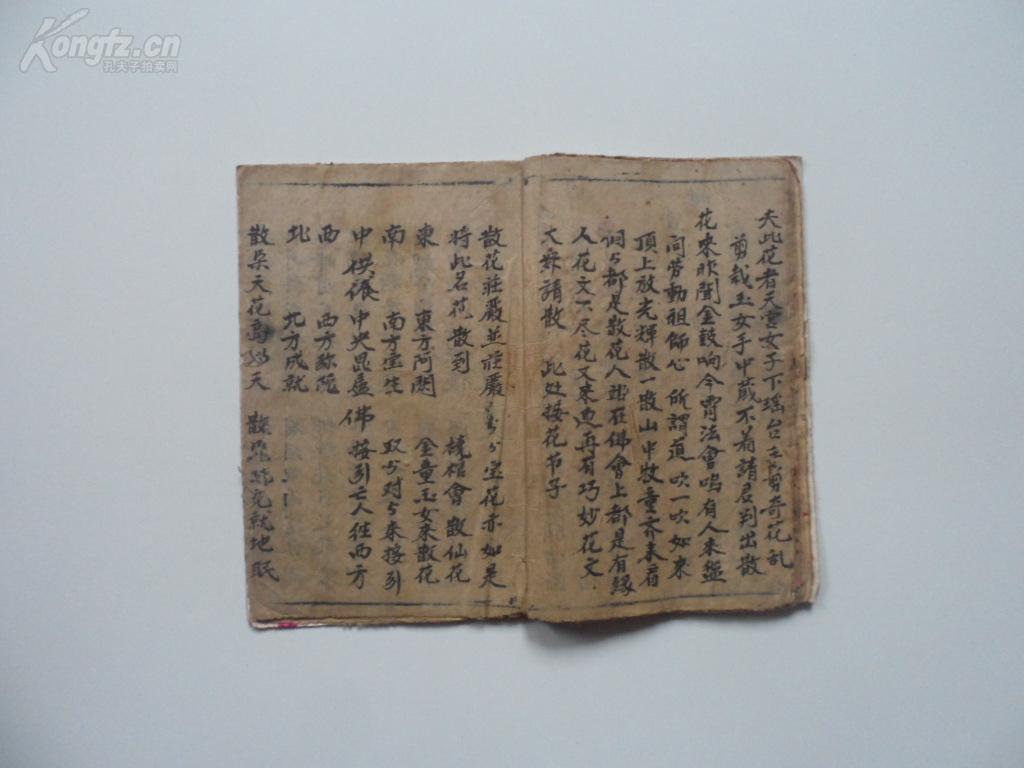 Kongfz.cn
孔夫子拍卖网
夫此花者天宫女子下瑶台剪奇花乱
剪裁玉女手中藏不着請君判出散
花來昨聞金鼓响今宵法會鳴有人來
同劳動祖師心 所謂道吹一吹如來
頂上放光輝散一散山中牧童齐来看
個々都是散花人站在佛會上都是有緣
人花文不尽花又來边再有巧妙花文
大衆請散 此处接花节子
散花莊嚴並莊嚴 々々宝花亦如是
將此名花散到 會散仙花
東 東方阿閦 金童玉女來散花
南 南方宝生 双々对々来接引
中 供養中央毘盧佛 接引亡人往西方
西 西方弥陀
北 北方成就
散朵天花高 天 就地眠